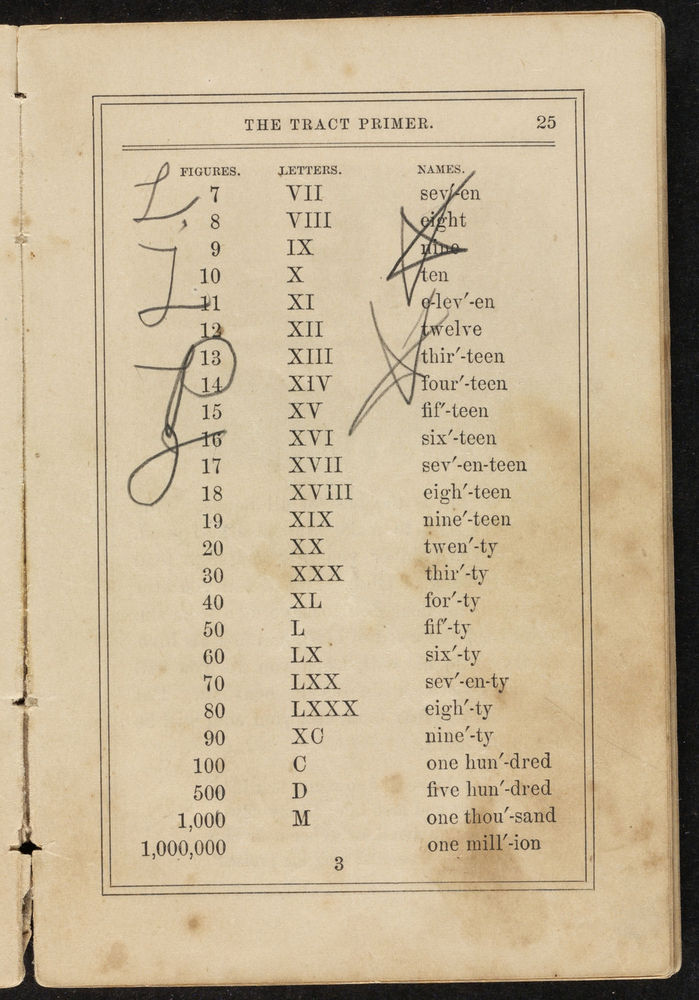 THE TRACT PRIMER. 25
FIGURES. LETTERS. NAMES.
7 VII sev′-en
8 VIII eight
9 IX nine
10 X ten
11 XI e-lev′-en
12 XII twelve
13 XIII thir′-teen
14 XIV four′-teen
15 XV fif′-teen
16 XVI six′-teen
17 XVII sev′-en-teen
18 XVIII eigh′-teen
19 XIX nine′-teen
20 XX twen′-ty
30 XXX thir′-ty
40 XL for′-ty
50 L fif′-ty
60 LX six′-ty
70 LXX sev′-en-ty
80 LXXX eigh′-ty
90 XC nine′-ty
100 C one hun′-dred
500 D five hun′-dred
1,000 M one thou′-sand
1,000,000 one mill′-ion
3